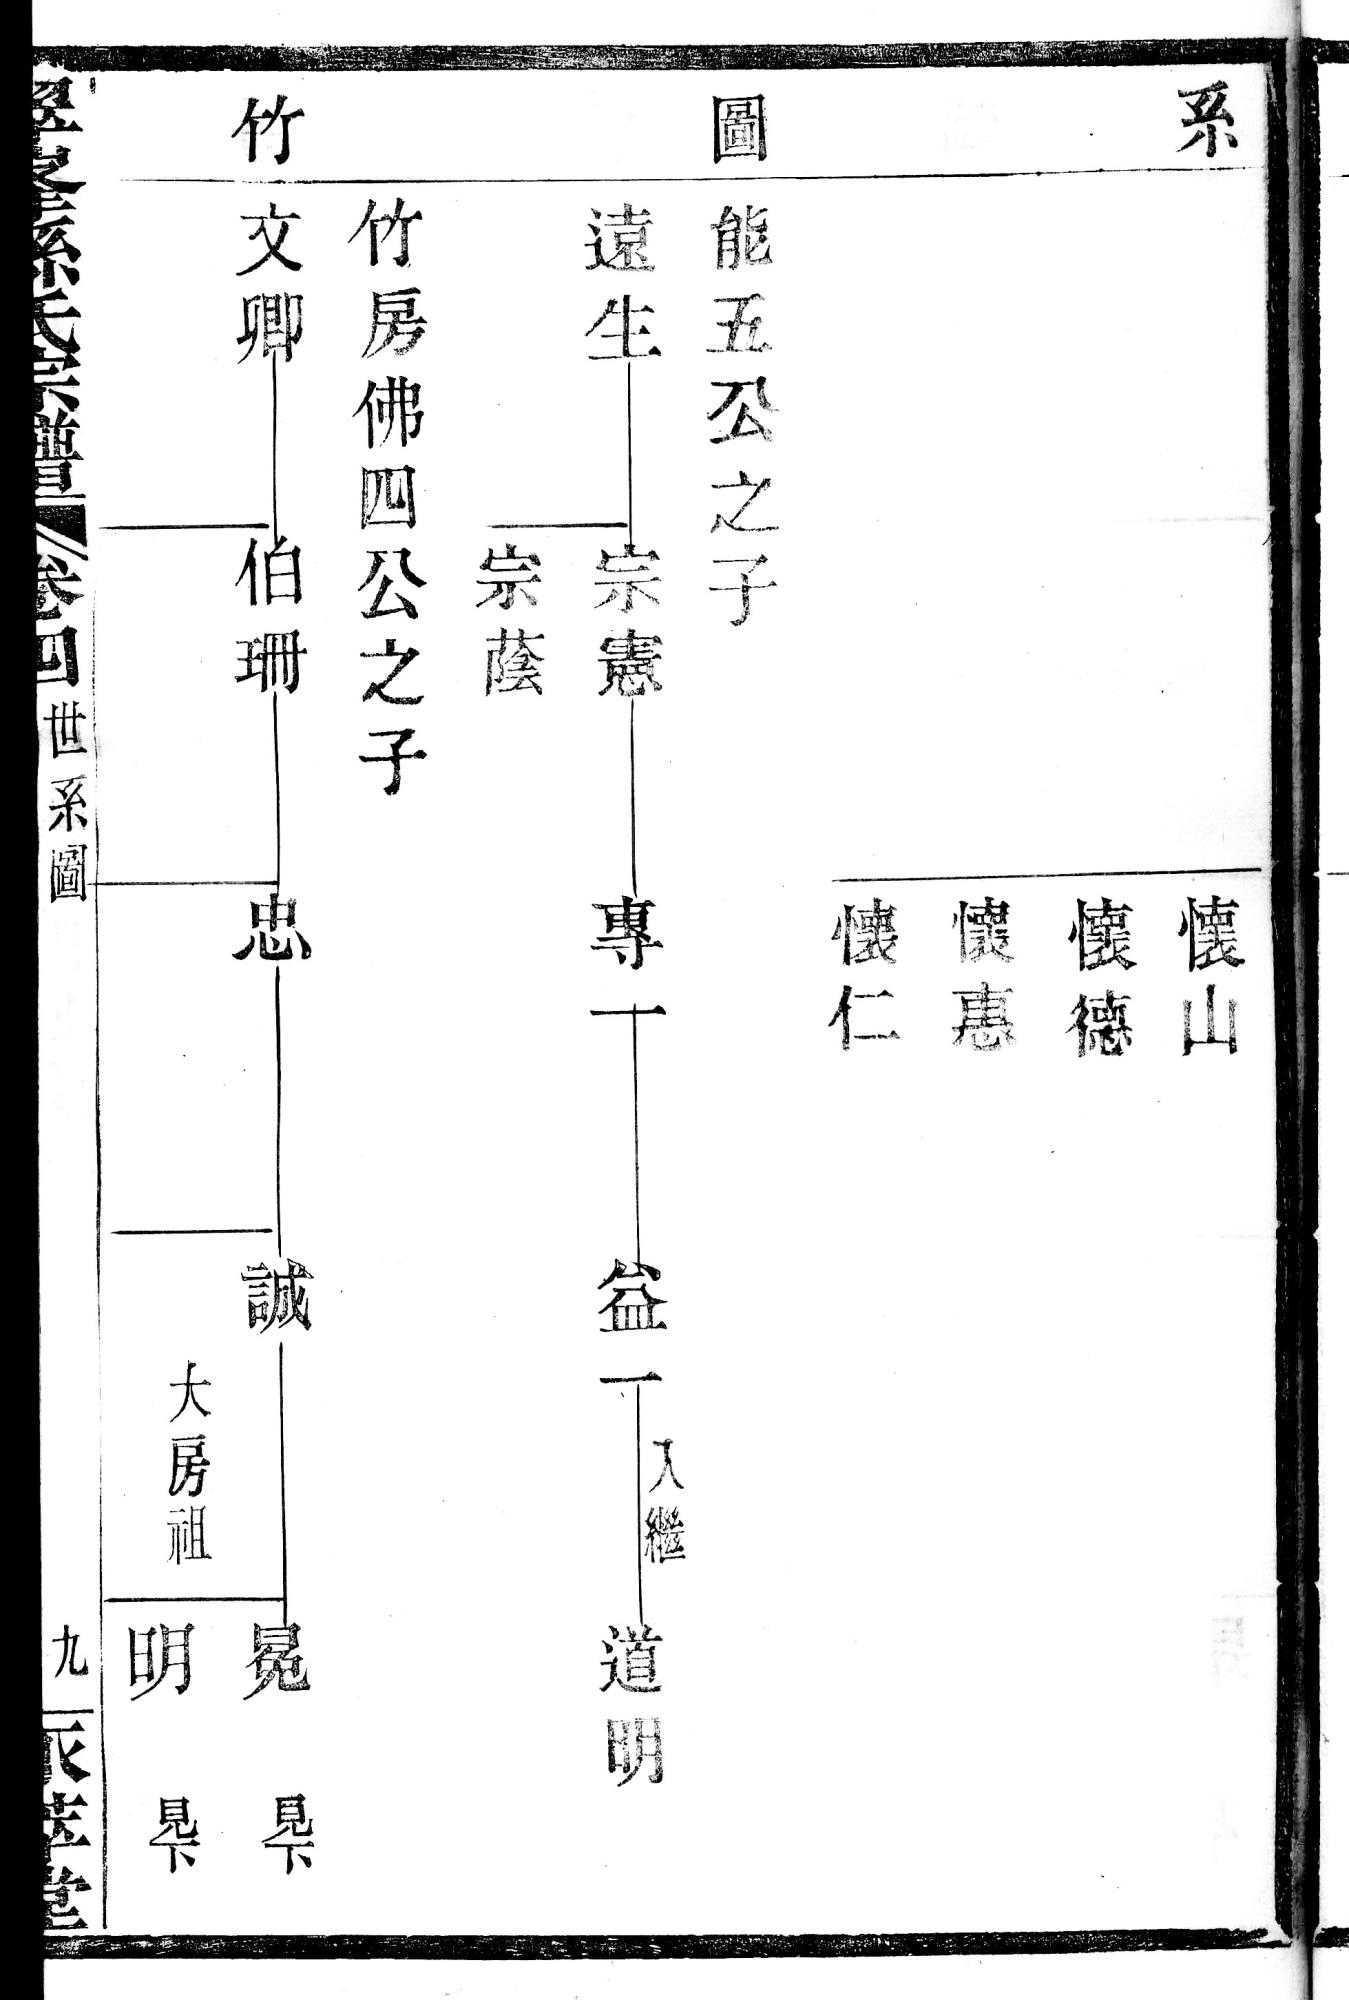 系
圖
竹
懷山
懷德
懷惠
懷仁
能五公之子
遠生
宗憲
宗蔭
專一
益一
入繼
道明
竹房佛四公之子
文卿
伯珊
忠
誠
大房祖
冕
見下
明
見下
孫氏宗譜
卷四
世系圖
九
堂